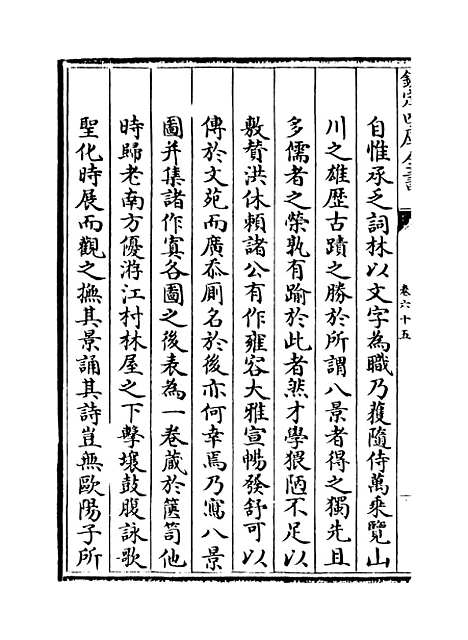 欽定四庫全書
卷六十五
自惟承乏詞林以文字為職乃獲隨侍萬乘覽山
川之雄歴古蹟之勝於所謂八景者得之獨先且
多儒者之榮孰有踰於此者然才學猥陋不足以
敷賛洪休頼諸公有作雍容大雅宣暢發舒可以
傳於文苑而廣忝厠名於後亦何幸焉乃寫八景
圖并集諸作寘各圖之後表為一卷蔵於篋笥他
時歸老南方優游江村林屋之下擊壤鼓腹詠歌
聖化時展而觀之撫其景誦其詩豈無歐陽子所